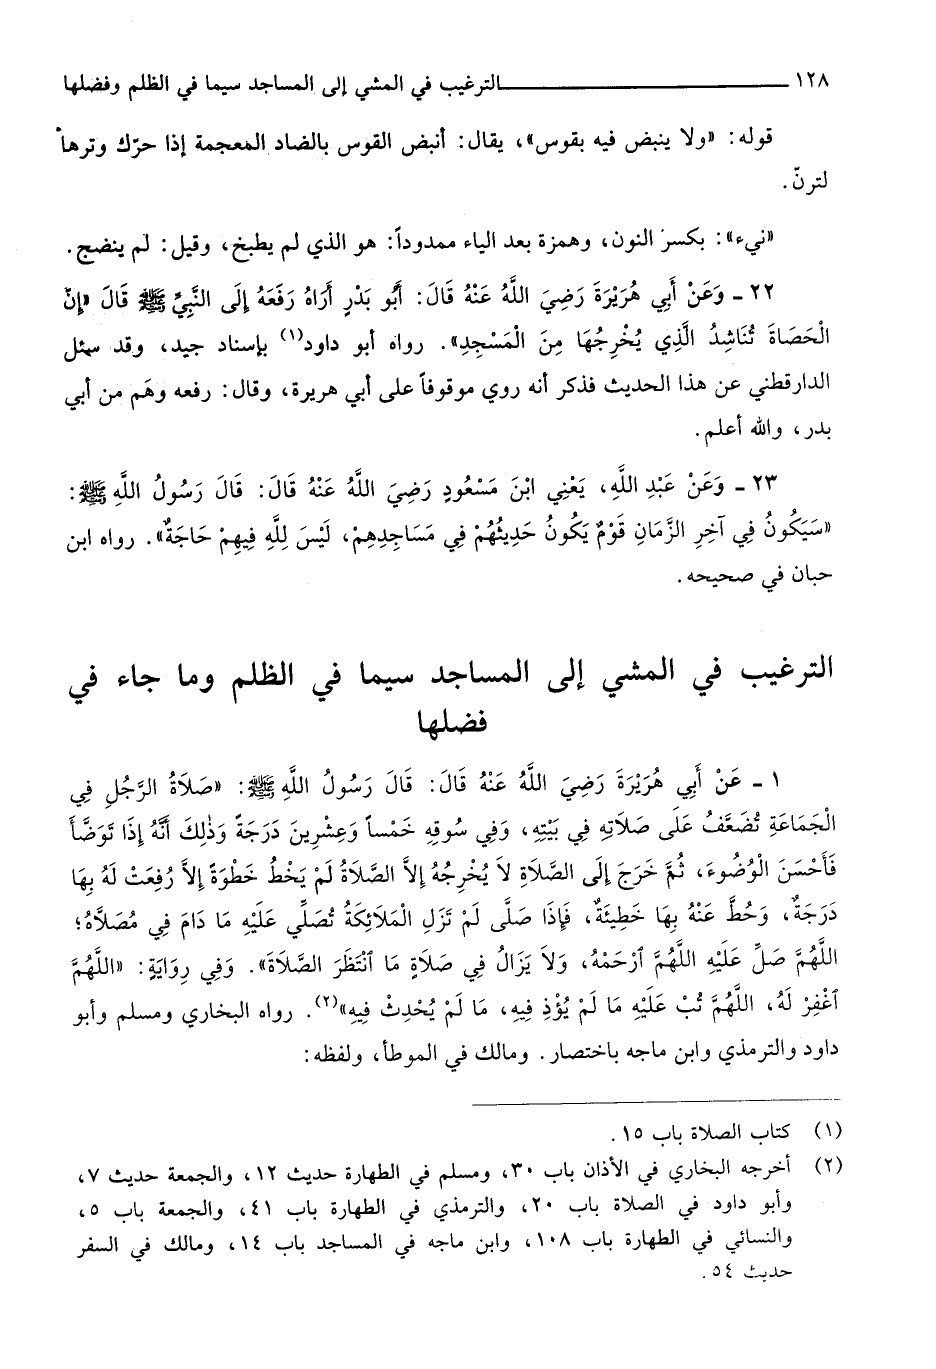 ١٢٨ ـــــــــــــــ الترغيب في المشي إلى المساجد سيما في الظلم وفضلها
قوله: «ولا ينبض فيه بقوس»، يقال: أنبض القوس بالضاد المعجمة إذا حرّك وترها
لترنّ.
«نيء»: بكسر النون، وهمزة بعد الياء ممدوداً: هو الذي لم يطبخ، وقيل: لم ينضج.
٢٢ ـ وَعَنْ أَبِي هُرَيْرَةَ رَضِيَ اللَّهُ عَنْهُ قَالَ: أَبُو بَدْرٍ أُرَاهُ رَفَعَهُ إِلَى النَّبِيِّ ﷺ قَالَ «إِنَّ
الْحَصَاةَ تُنَاشِدُ الَّذِي يُخْرِجُهَا مِنَ الْمَسْجِدِ». رواه أبو داود(١) بإسناد جيد، وقد سئل
الدارقطني عن هذا الحديث فذكر أنه روي موقوفاً على أبي هريرة، وقال: رفعه وهَم من أبي
بدر، والله أعلم.
٢٣ ـ وَعَنْ عَبْدِ اللَّهِ، يَعْنِي ابْنَ مَسْعُودٍ رَضِيَ اللَّهُ عَنْهُ قَالَ: قَالَ رَسُولُ اللَّهِ ﷺ:
«سَيَكُونُ فِي آخِرِ الزَّمَانِ قَوْمٌ يَكُونُ حَدِيثُهُمْ فِي مَسَاجِدِهِمْ، لَيْسَ لِلَّهِ فِيهِمْ حَاجَةٌ». رواه ابن
حبان في صحيحه.
الترغيب في المشي إلى المساجد سيما في الظلم وما جاء في
فضلها
١ ـ عَنْ أَبِي هُرَيْرَةَ رَضِيَ اللَّهُ عَنْهُ قَالَ: قَالَ رَسُولُ اللَّهِ ﷺ: «صَلَاةُ الرَّجُلِ فِي
الْجَمَاعَةِ تُضَعَّفُ عَلَى صَلَاتِهِ فِي بَيْتِهِ، وَفِي سُوقِهِ خَمْساً وَعِشْرِينَ دَرَجَةً وَذٰلِكَ أَنَّهُ إِذَا تَوَضَّأَ
فَأَحْسَنَ الْوُضُوءَ، ثُمَّ خَرَجَ إِلَى الصَّلَاةِ لاَ يُخْرِجُهُ إِلاَّ الصَّلَاةُ لَمْ يَخْطُ خَطْوَةً إِلاَّ رُفِعَتْ لَهُ بِهَا
دَرَجَةٌ، وَحُطَّ عَنْهُ بِهَا خَطِيئَةٌ، فَإِذَا صَلَّى لَمْ تَزَلِ الْمَلَائِكَةُ تُصَلِّي عَلَيْهِ مَا دَامَ فِي مُصَلَّاهُ؛
اللَّهُمَّ صَلِّ عَلَيْهِ اللَّهُمَّ ٱرْحَمْهُ، وَلاَ يَزَالُ فِي صَلَاةٍ مَا ٱنْتَظَرَ الصَّلَاةَ». وَفِي رِوَايَةٍ: «اللَّهُمَّ
ٱغْفِرْ لَهُ، اللَّهُمَّ تُبْ عَلَيْهِ مَا لَمْ يُؤْذِ فِيهِ، مَا لَمْ يُحْدِثْ فِيهِ»(٢). رواه البخاري ومسلم وأبو
داود والترمذي وابن ماجه باختصار. ومالك في الموطأ، ولفظه:
(١) كتاب الصلاة باب ١٥.
(٢) أخرجه البخاري في الأذان باب ٣٠، ومسلم في الطهارة حديث ١٢، والجمعة حديث ٧،
وأبو داود في الصلاة باب ٢٠، والترمذي في الطهارة باب ٤١، والجمعة باب ٥،
والنسائي في الطهارة باب ١٠٨، وابن ماجه في المساجد باب ١٤، ومالك في السفر
حديث ٥٤.